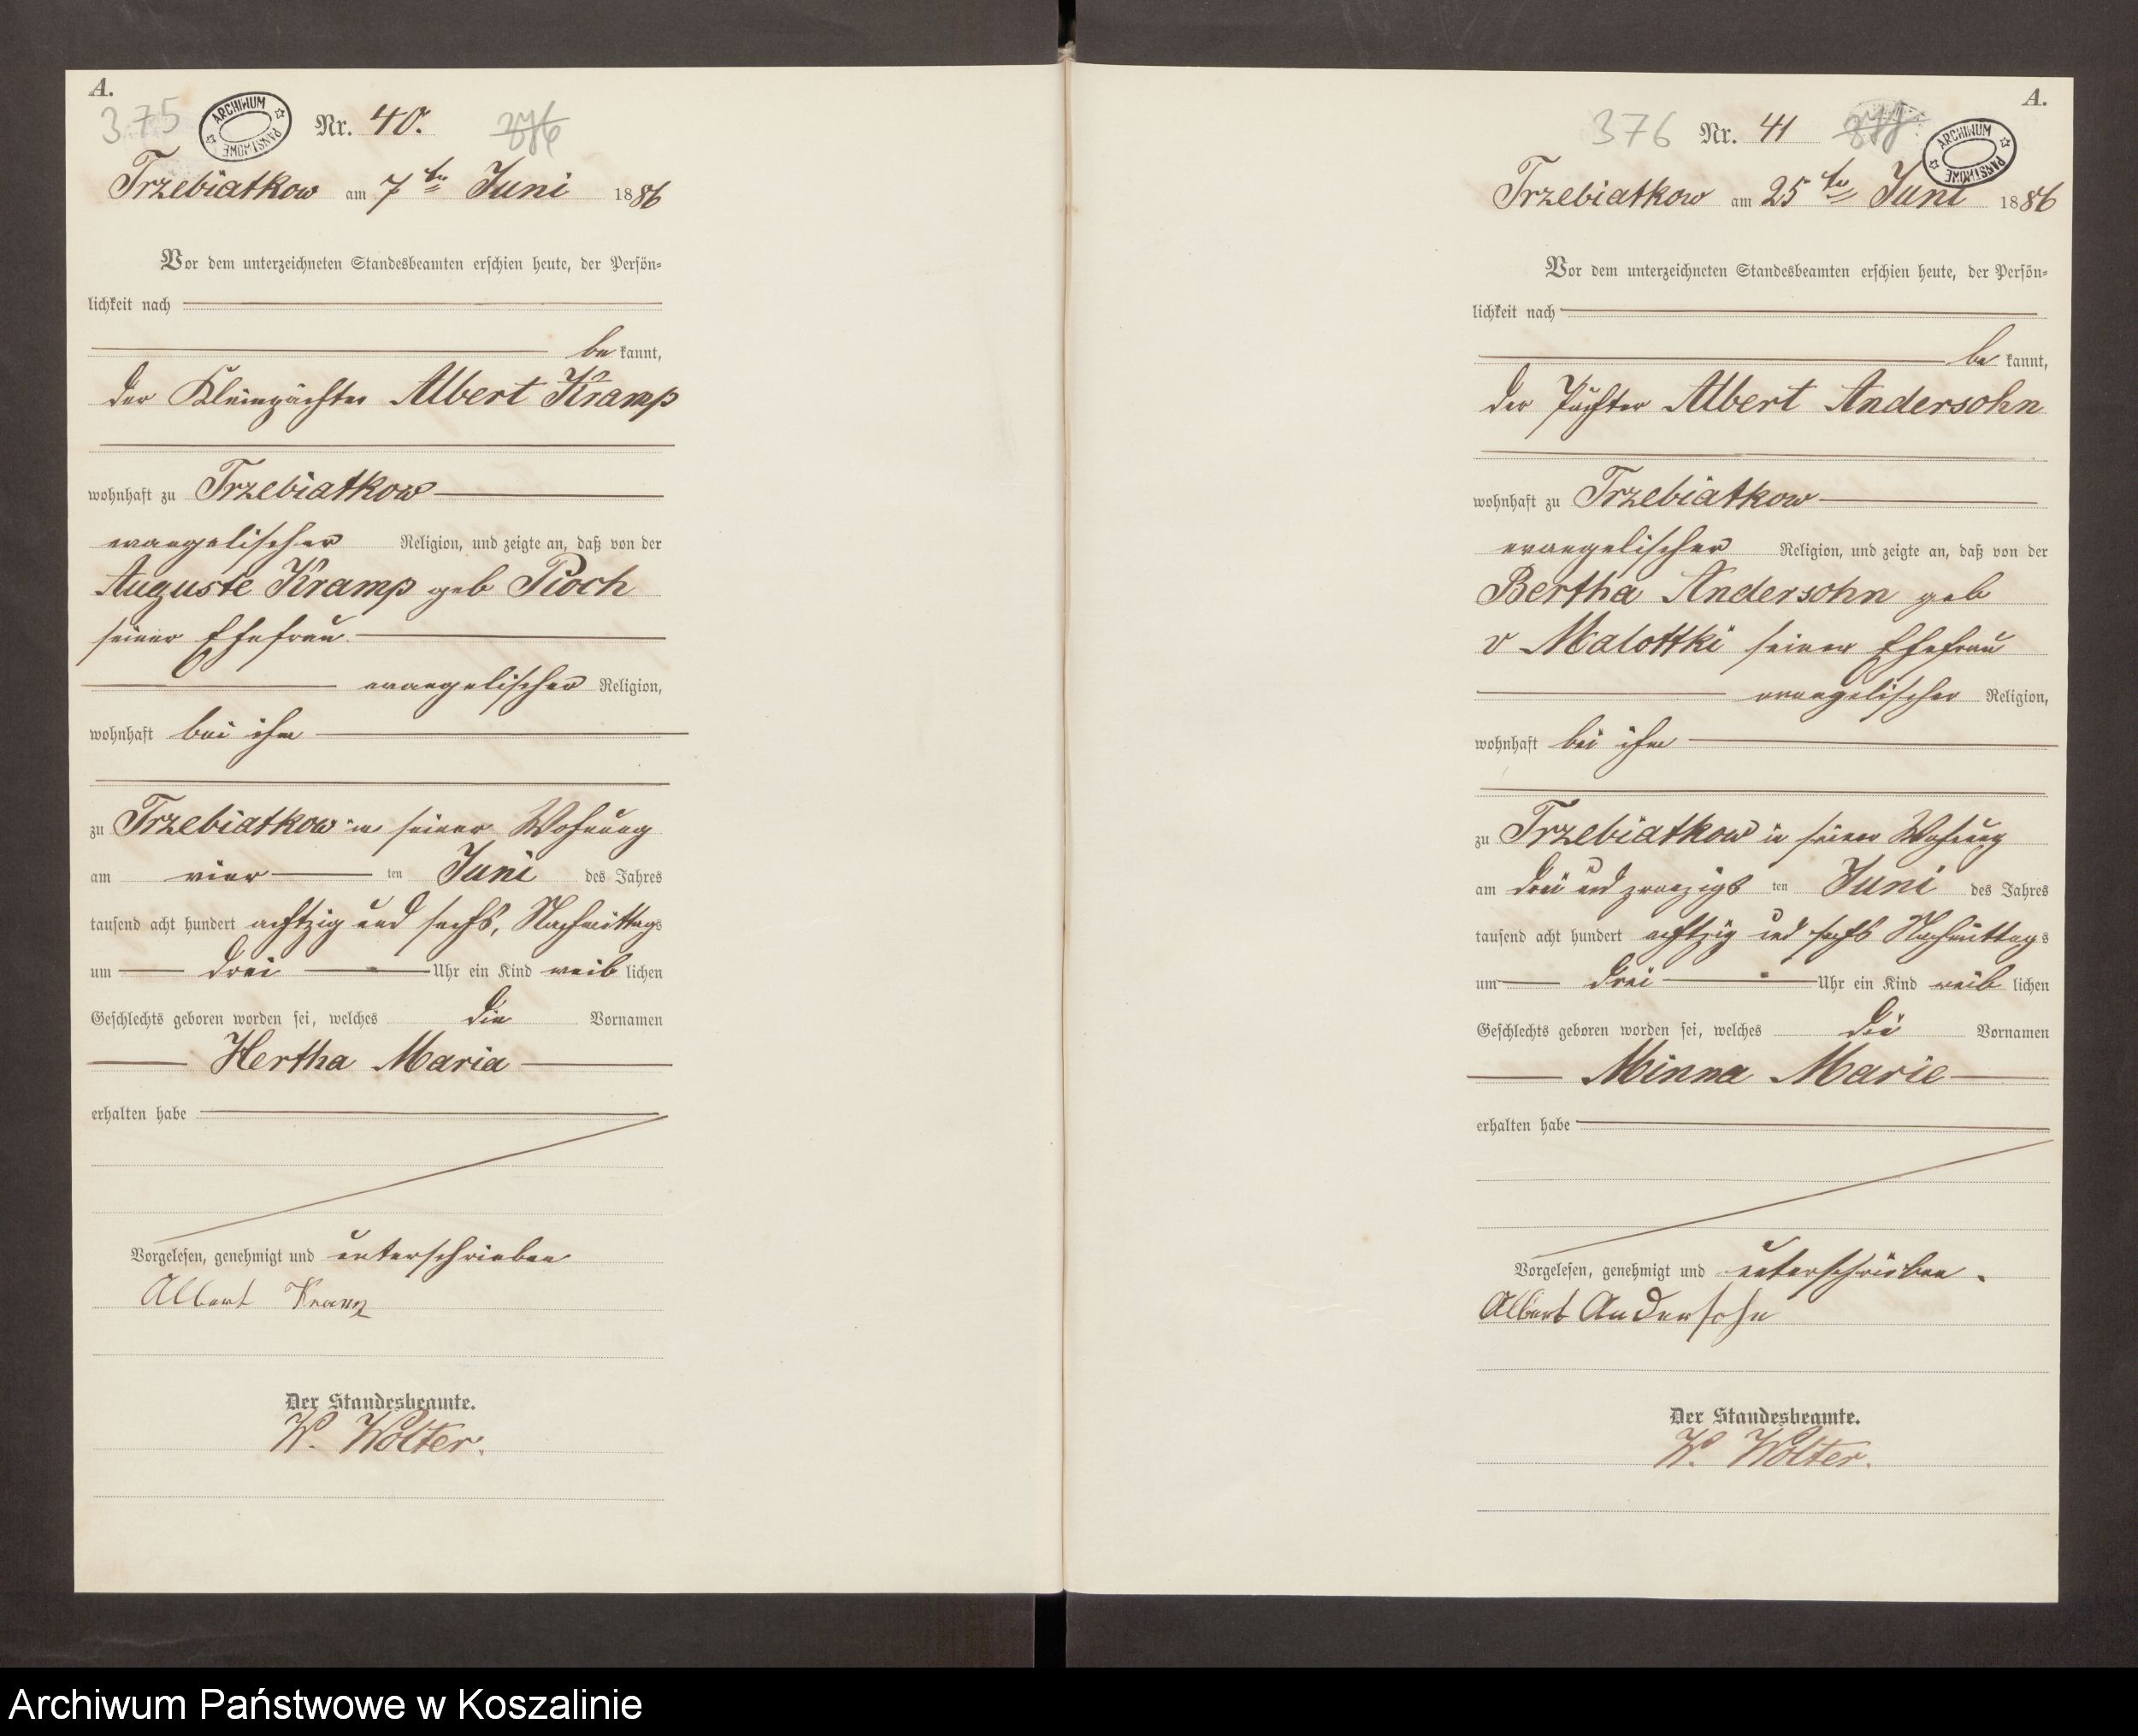 A.
375
ARCHIWUM PAŃSTWOWE
Nr. 40.
Trzebiatkow am 7ten Juni 1886
Vor dem unterzeichneten Standesbeamten erschien heute, der Persön-
lichkeit nach
be kannt,
der Kleinpächter Albert Kramp
wohnhaft zu Trzebiatkow
evangelischer Religion, und zeigte an, daß von der
Auguste Kramp geb Pioch
seiner Ehefrau
evangelischer Religion,
wohnhaft bei ihm
zu Trzebiatkow in seiner Wohnung
am vier ten Juni des Jahres
tausend acht hundert achtzig und sechs, Nachmittags
um drei Uhr ein Kind weib lichen
Geschlechts geboren worden sei, welches die Vornamen
Hertha Maria
erhalten habe
Vorgelesen, genehmigt und unterschrieben
Albert Kramp
Der Standesbeamte.
W. Wolter.
A.
376
Nr. 41
ARCHIWUM PAŃSTWOWE
Trzebiatkow am 25ten Juni 1886
Vor dem unterzeichneten Standesbeamten erschien heute, der Persön-
lichkeit nach
be kannt,
der Pächter Albert Andersohn
wohnhaft zu Trzebiatkow
evangelischer Religion, und zeigte an, daß von der
Bertha Andersohn geb
v Malottki seiner Ehefrau
evangelischer Religion,
wohnhaft bei ihm
zu Trzebiatkow in seiner Wohnung
am drei und zwanzigs ten Juni des Jahres
tausend acht hundert achtzig und sechs Nachmittags
um drei Uhr ein Kind weib lichen
Geschlechts geboren worden sei, welches die Vornamen
Minna Marie
erhalten habe
Vorgelesen, genehmigt und unterschrieben.
Albert Andersohn
Der Standesbeamte.
W. Wolter.
Archiwum Państwowe w Koszalinie